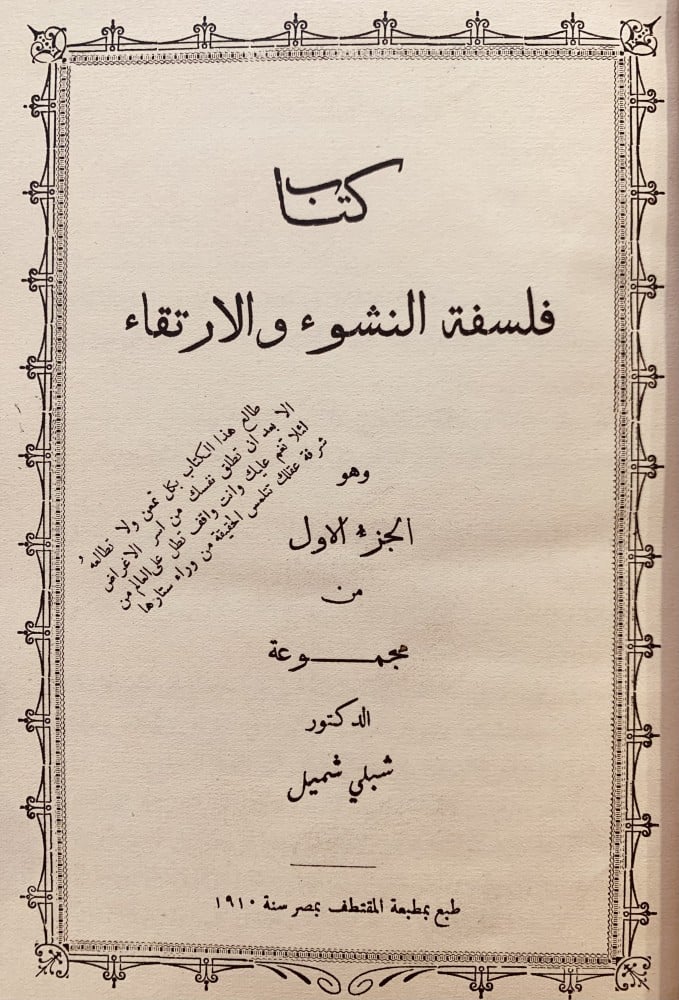 كتاب
فلسفة النشوء والارتقاء
طالع هذا الكتاب بكل تمعن ولا تطالعهُ
الا بعد ان تطلق نفسك من اسر الاغراض
لئلا تغم عليك وانت واقف تطل على العالم من
شرفة عقلك تتلمس الحقيقة من وراء ستارها
وهو
الجزء الاول
من
مجموعة
الدكتور
شبلي شميل
طبع بمطبعة المقتطف بمصر سنة ١٩١٠